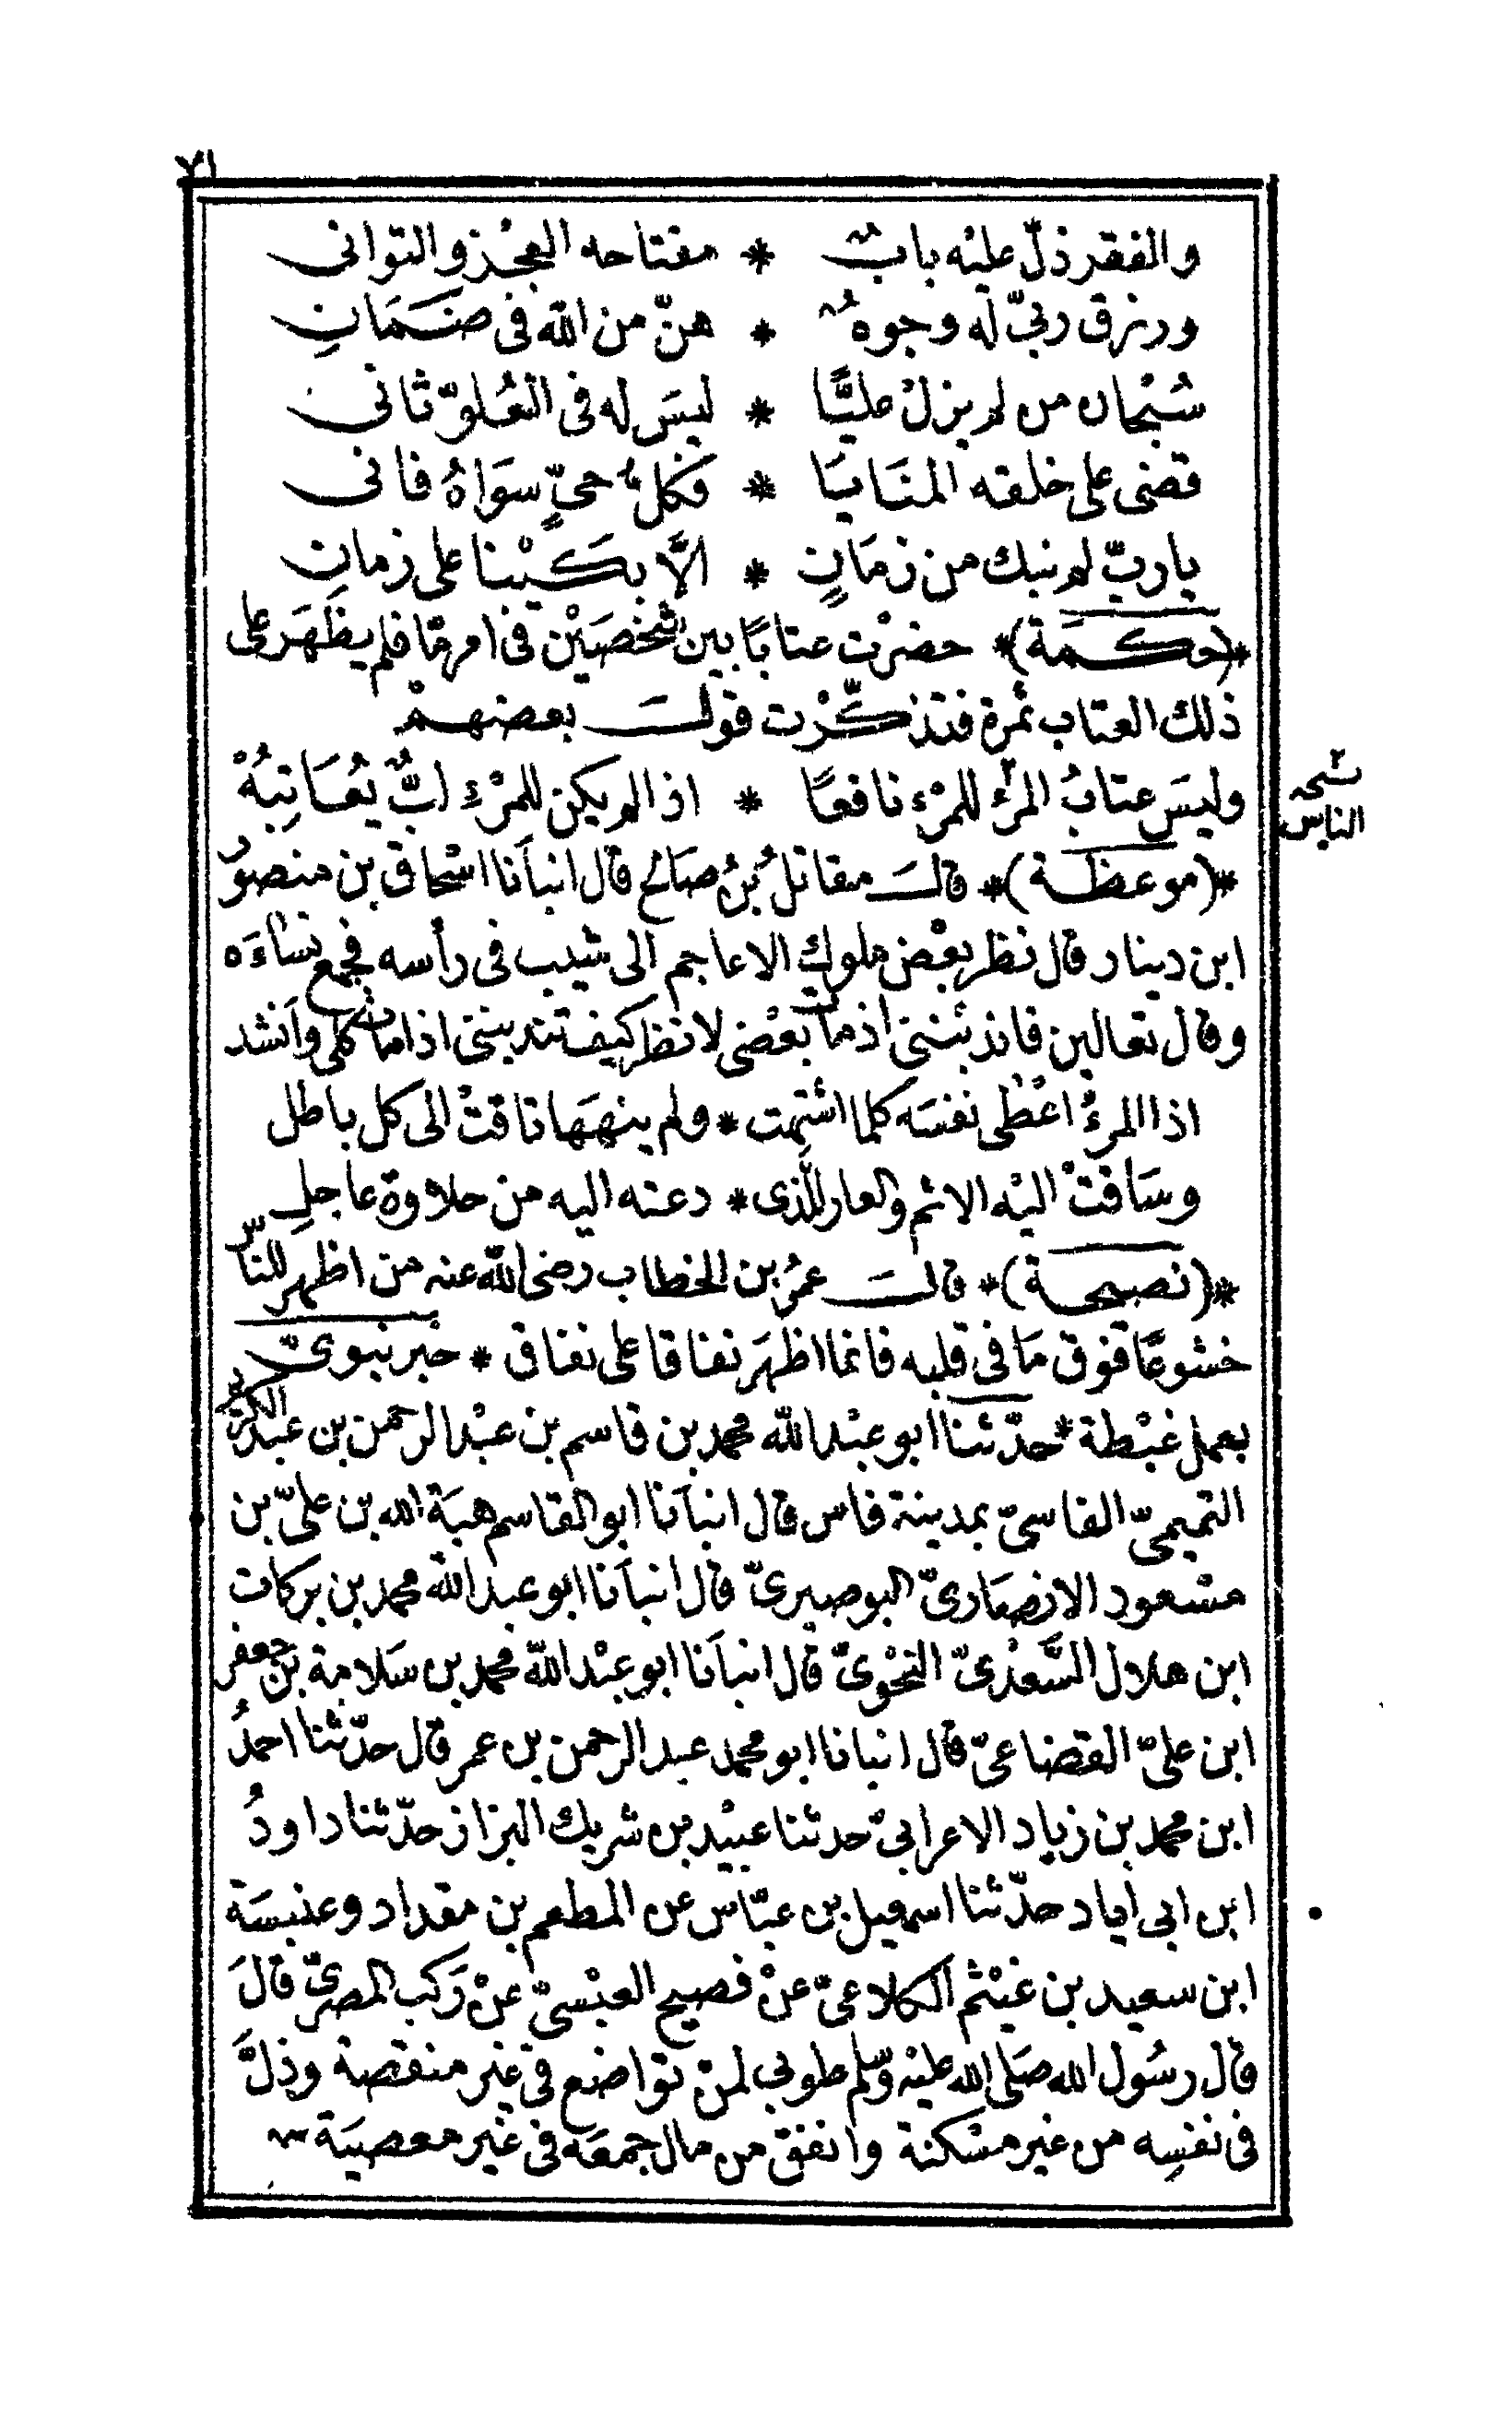 ٧١
والفقر ذلّ عليْه بابٌ * مفتاحه العجْز والتوانى
ورزق ربىّ له وجوهٌ * هنّ من الله فى ضَمَانِ
سُبْحان من لم يزلْ عليًّا * ليسَ له فى العُلوّ ثانى
قضى على خلقه المنَايَا * فكلُّ حىٍّ سوَاهُ فانى
ياربّ لم نبك من زمَانٍ * الَّا بكَيْنا على زمانِ
*(حكمَة)* حضرْت عتابًا بين شخْصَيْن فى امر مّا فلم يظهَر على
ذلك العتاب ثمرة فتذكّرْت قولَ بعضهمْ
وليسَ عتابُ المرْءِ للمرْءِ نافعًا * اذا لم يكن للمرْءِ لبٌّ يُعَاتِبُهْ
نسخه
الناس
*(موعظة)* قالَ مقاتلُ بنُ صَالح قال انبأنا اسْحاق بن منصُور
ابن دينار قال نظر بعْض ملوك الاعاجم الى شيب فى رأسه فجمع نسَاءَه
وقال تعالين فاندبْننى اذ مات بعْضى لانظر كيف تندبننى اذا مات كلى وأنشد
اذا المرءُ اعْطى نفسَه كلما اشتهت * ولم ينهَهَا تاقتْ الى كل باطل
وسَاقتْ اليْه الاثم والعار للَّذى * دعته اليه من حلاوة عاجلِ
*(نصيحة)* قالَ عمرُ بن الخطاب رضى الله عنه من اظهر للنّاس
خشوعًا فوق مَا فى قلبه فانما اظهَر نفاقا على نفاق * خبر نبوىّ
بعمل غبْطة * حدّثنا ابو عبْد الله محمد بن قاسم بن عبْد الرحمن بن عبد الكريم
التميمىّ الفاسىّ بمدينة فاس قال انبأنا ابو القاسم هبَة الله بن علىّ بن
مسْعود الانصَارىّ البوصيرىّ قال انبأنا ابو عبد الله محمد بن بركات
ابن هلال السَّعدْىّ النحْوىّ قال انبأنا ابو عبْد الله محمد بن سَلامة بن جعفر
ابن علىّ القضاعىّ قال انبانا ابو محمد عبد الرحمن بن عمر قال حدّثنا احمدُ
ابن محمد بن زياد الاعرابىّ حدثنا عبيْد بن شريك البزاز حدّثنا داودُ
ابن ابى اياد حدّثنا اسمعيل بن عبّاس عن المطعم بن مقداد وعنبسَة
ابن سعيد بن غيْثم الكلاعىّ عنْ فصيح العبْسىّ عنْ رَكب المصرىّ قالَ
قال رسُول الله صَلى الله عليْه وسّلم طوبى لمنْ تواضع فى غير منقصة وذلَّ
فى نفسِه من غير مسْكنة وانفق من مال جمعَه فى غير معصيَة